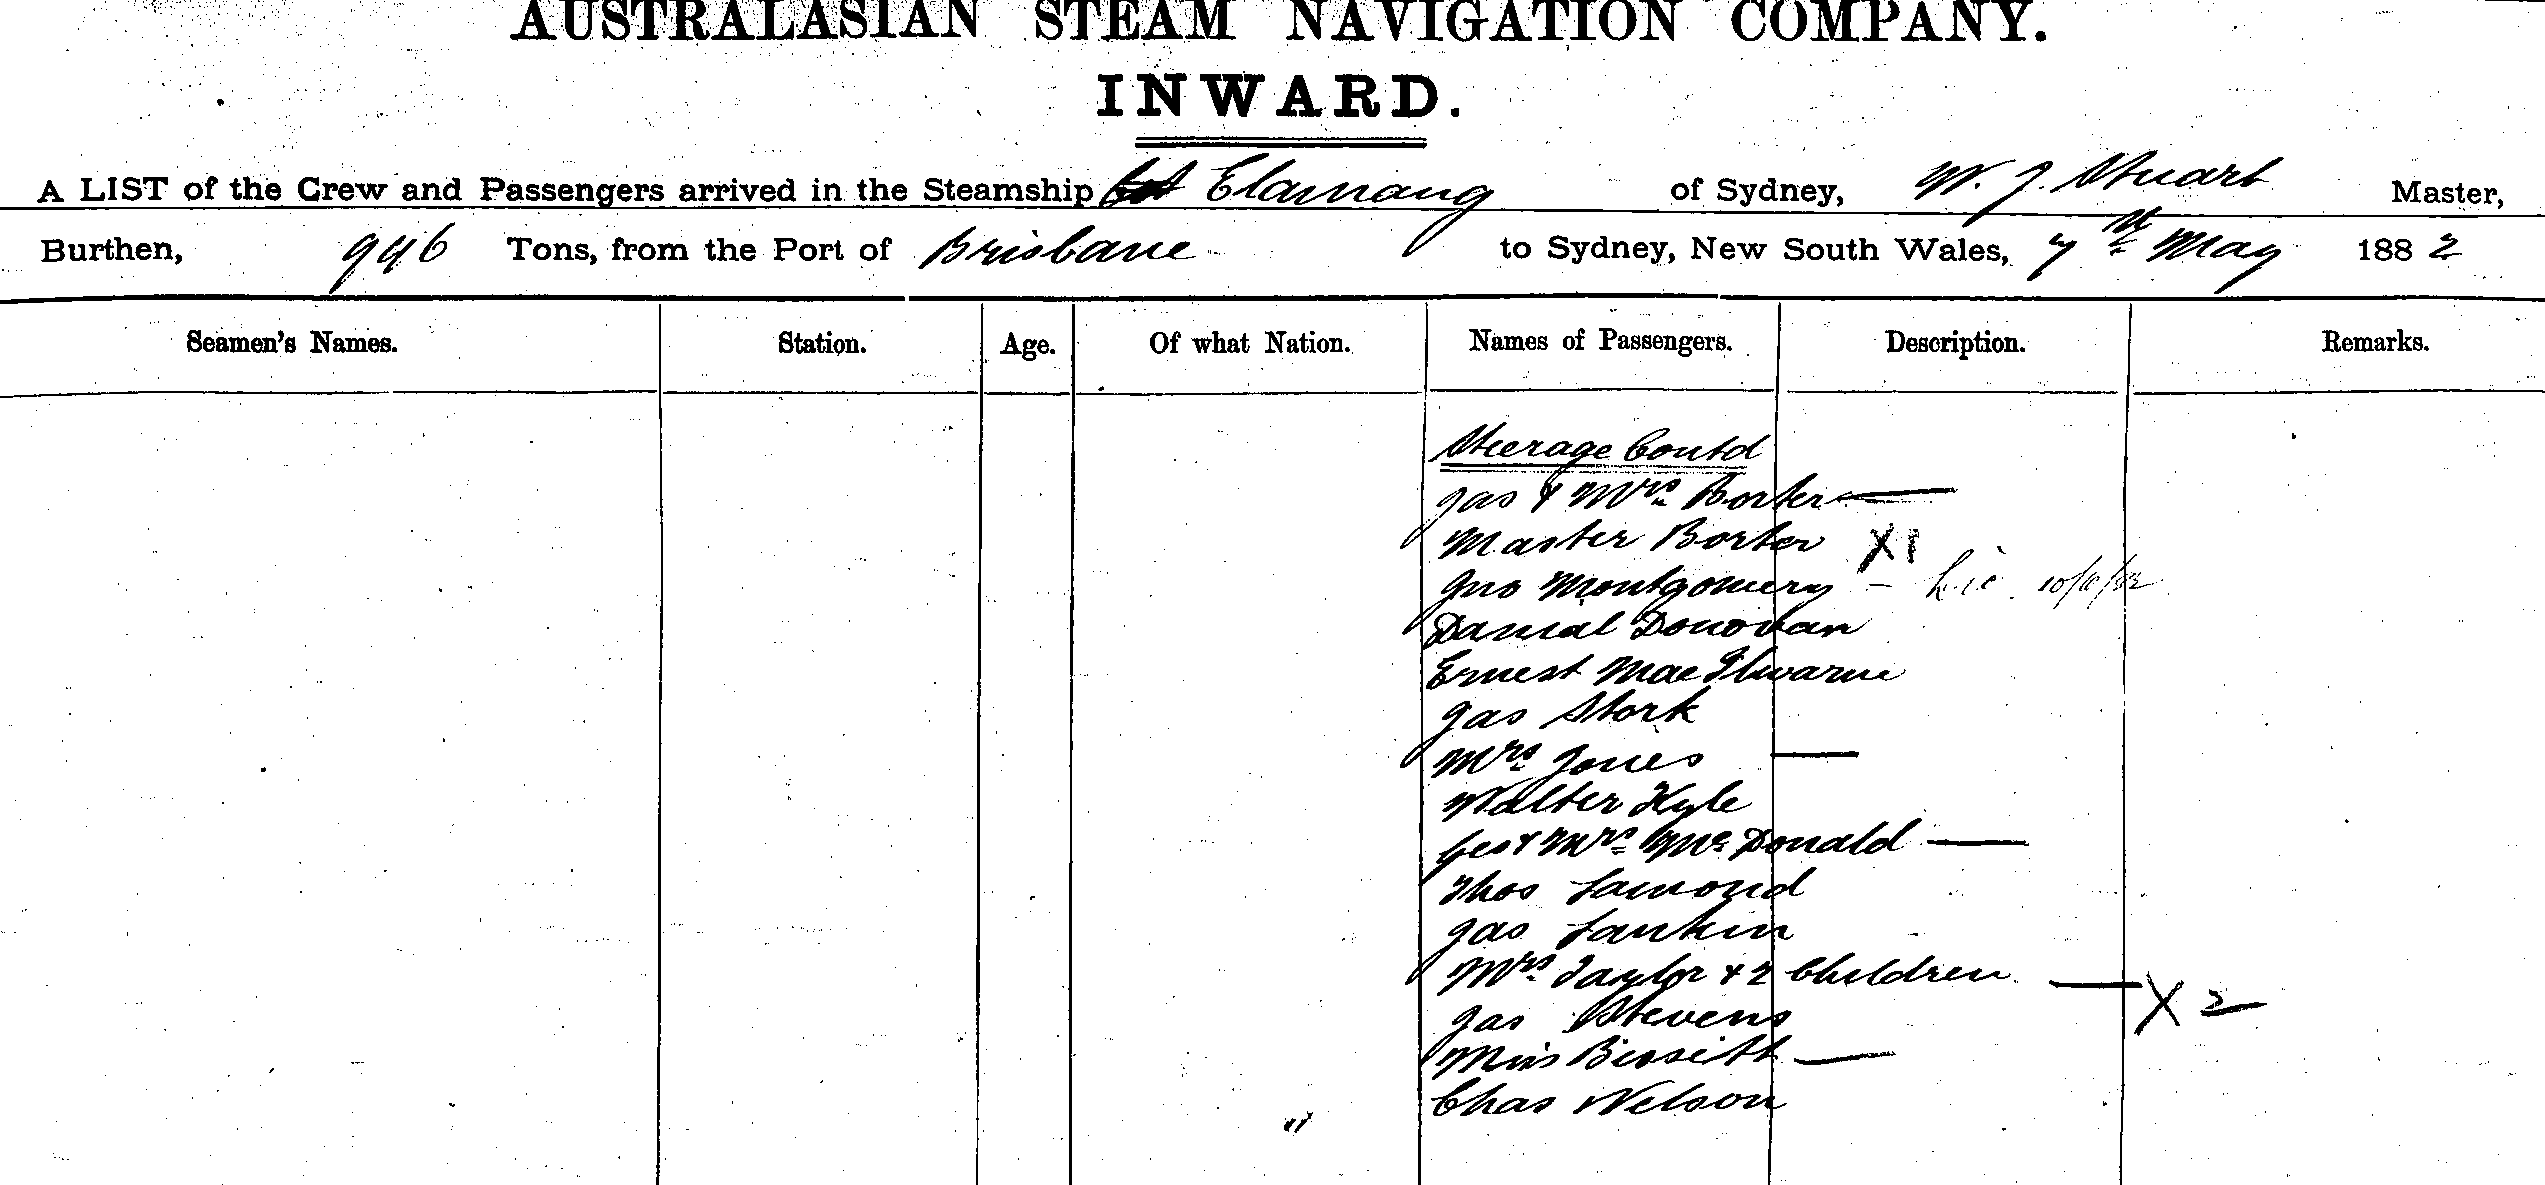 AUSTRALASIAN STEAM NAVIGATION COMPANY.
INWARD.
A LIST of the Crew and Passengers arrived in the Steamship Elamang of Sydney, W. J. Stuart Master,
Burthen, 996 Tons, from the Port of Brisbane to Sydney, New South Wales, 7th May 1882
Seamen's Names. Station. Age. Of what Nation. Names of Passengers. Description. Remarks.
Steerage Contd
Jas & Mrs Borter
Master Borter X1
Jno Montgomery
Danial Donovan
Ernest MacIlwarne
Jas Stork
Mrs Jones
Walter Kyle
Geo & Mrs McDonald
Thos Lamond
Jas Lankin
Mrs Taylor & 2 Children X 2
Jas Stevens
Miss
Chas Nelson